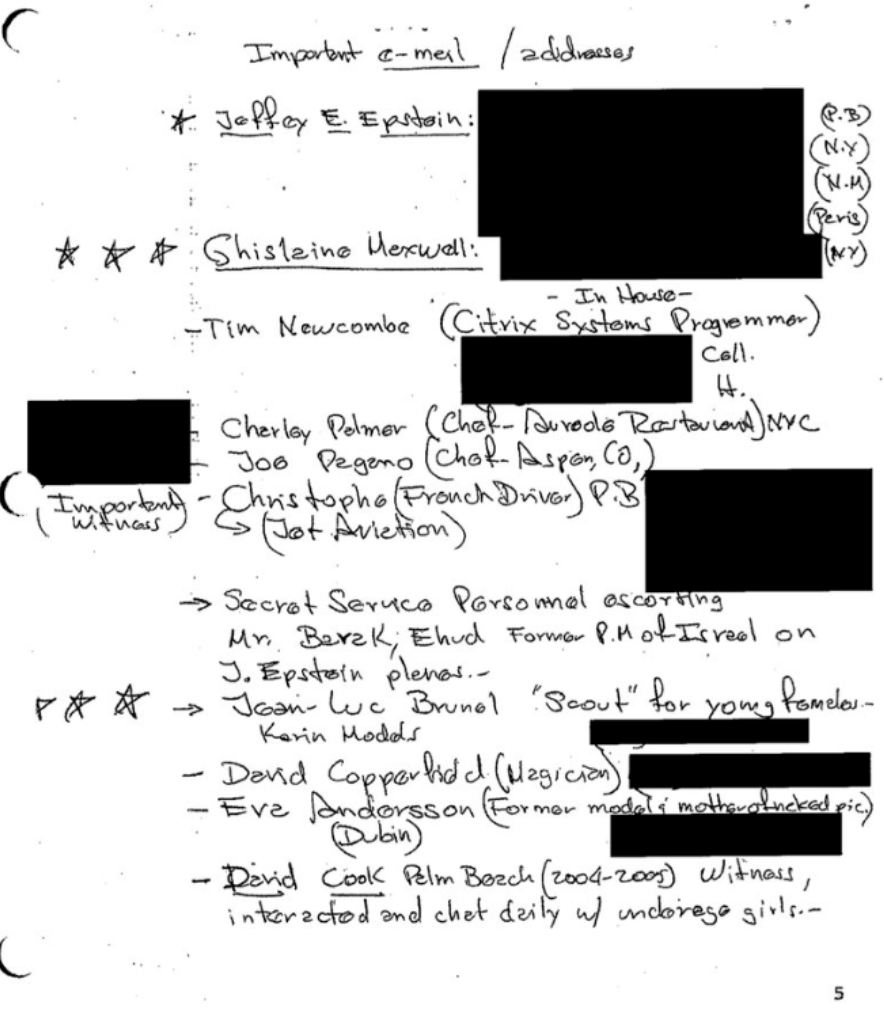 Important e-mail / addresses
* Jeffey E. Epstein:
(P.B)
(N.Y)
(N.M)
(Paris)
Ghislaine Maxwell:
(NY)
- In House -
- Tim Newcombe (Citrix Systems Programmer)
Cell.
H.
- Charley Palmer (Chef - Aureole Restaurant) NYC
- Joe Pagano (Chef - Aspen, CO,)
(Important witness) - Christophe (French Driver) P.B
↳ (Jet Aviation)
→ Secret Service Personnel escorting
Mr. Barak, Ehud Former P.M of Israel on
J. Epstein planes.-
→ Jean-Luc Brunel "Scout" for young females.-
Karin Models
- David Copperfield (Magician)
- Eva Andersson (Former model & mother of naked pic.)
(Dubin)
- David Cook Palm Beach (2004-2005) Witness,
interacted and chat daily w/ underage girls.-
5